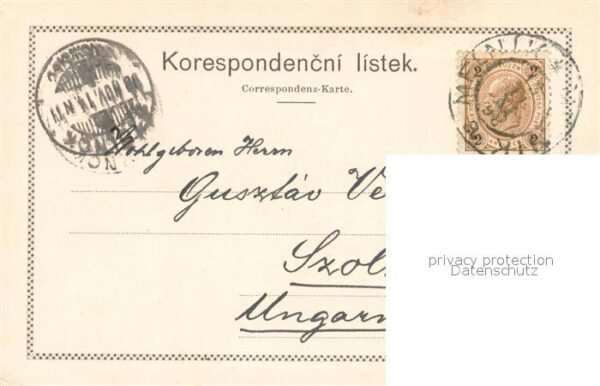 Korespondenční lístek.
Correspondenz-Karte.
MELNÍK
2 2
2 2
98 NOV 14 N 11
Wohlgeboren Herrn
Gusztáv Ve
Szol
Ungarn
privacy protection
Datenschutz